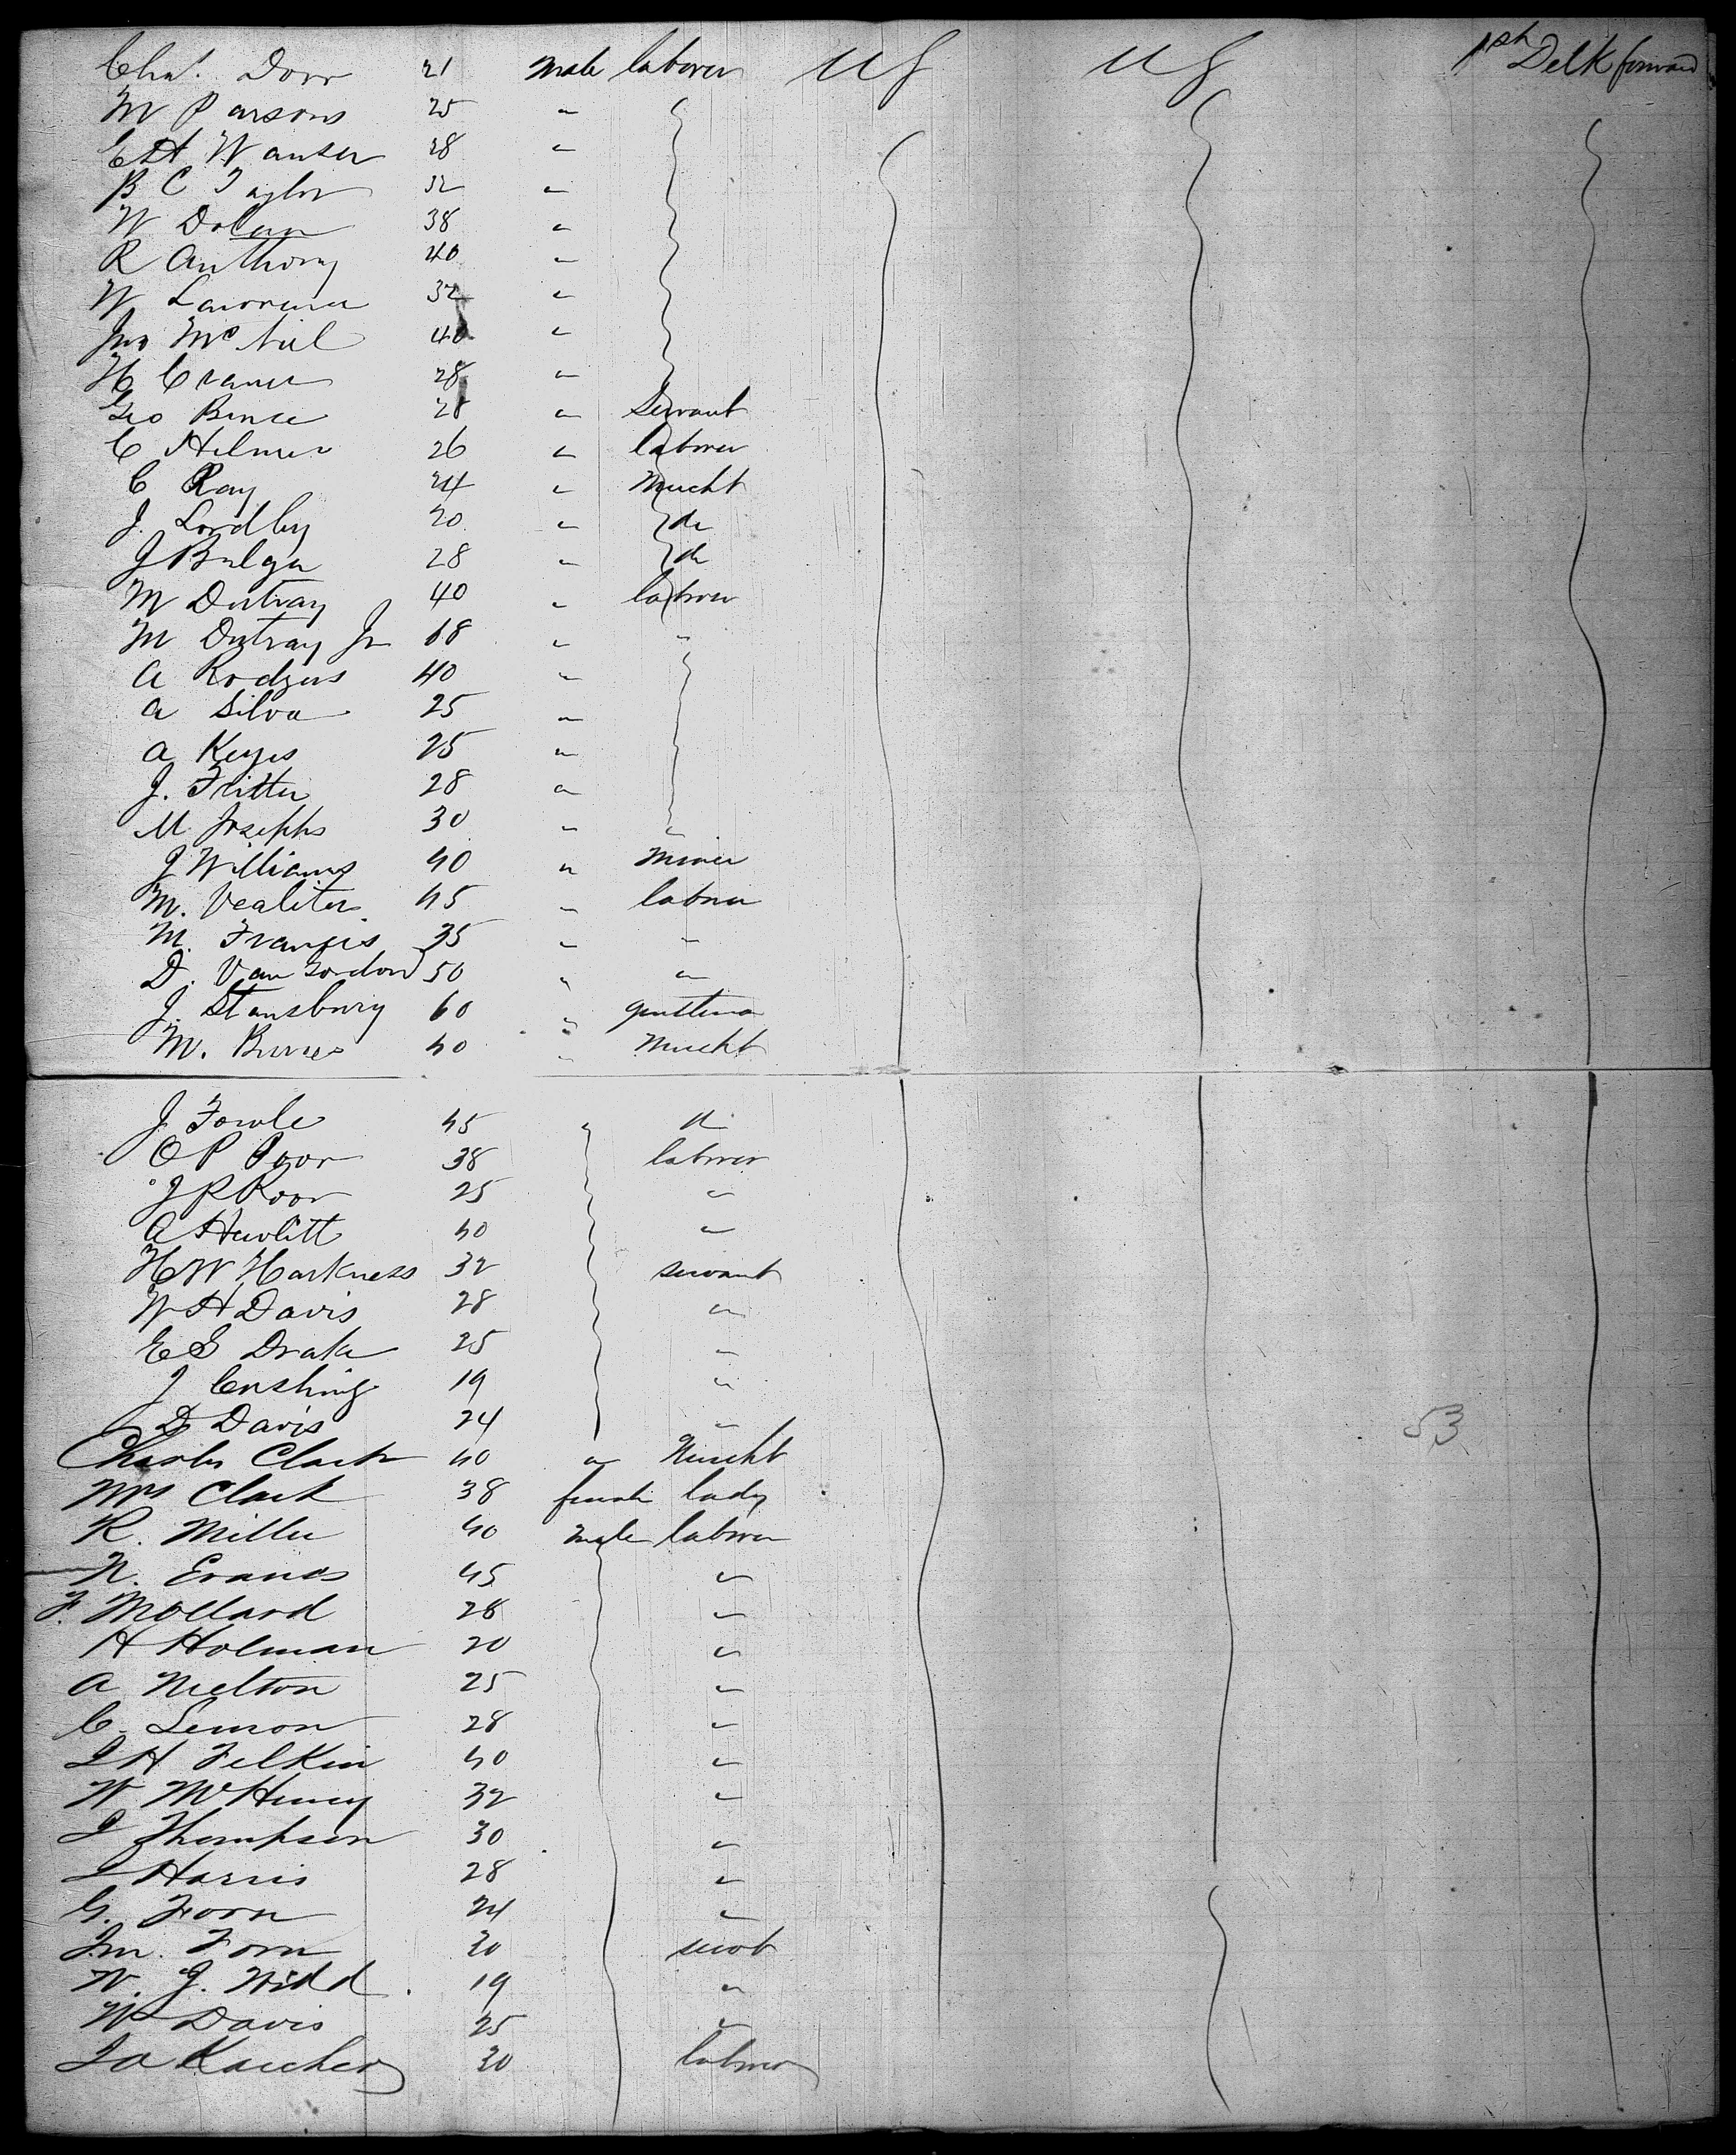 Chas. Dorr 21 male laborer US US 1st Deck forward
M Parsons 25 "
E H Wanser 28 "
B C Taylor 32 "
W Dolan 38 "
R Anthony 40 "
W Lawrence 32 "
Jno McNeil 40 "
H Cramer 28 "
Geo Bence 28 " Servant
C Hilmer 26 " laborer
C Ray 24 " Mercht
J. Lordby 20 " do
J Bulger 28 " do
M Dutray 40 " laborer
M Dutray Jr 18 " "
A Rodgers 40 "
A Silva 25 "
A Keyes 25 "
J. Flitter 28 "
M Josephs 30 " "
J Williams 40 " Miner
M. Vealiter 45 " laborer
M. Francis 35 " "
D. Van Gordon 50 " "
J. Stansbury 60 " gentleman
M. Burnes 40 " Mercht
J Fowle 45 " "
O P Poor 38 laborer
J R Poor 25 "
A Hewlitt 40 "
H W Harkness 32 servant
W H Davis 28 "
E S Drake 25 "
J Cushing 19 "
D Davis 24 "
Charles Clark 40 " Mercht
Mrs Clark 38 female lady
R. Miller 40 male laborer
N. Evans 45 "
F. Mollard 28 "
H Holman 20 "
A Melton 25 "
C. Lemon 28 "
I H Felkin 40 "
W McHenry 32 "
I Thompson 30 "
I Harris 28 "
G. Forn 24 "
Jm. Forn 20 servt
W. J. Widd 19 "
W Davis 25 "
J A Karcher 30 laborer
53